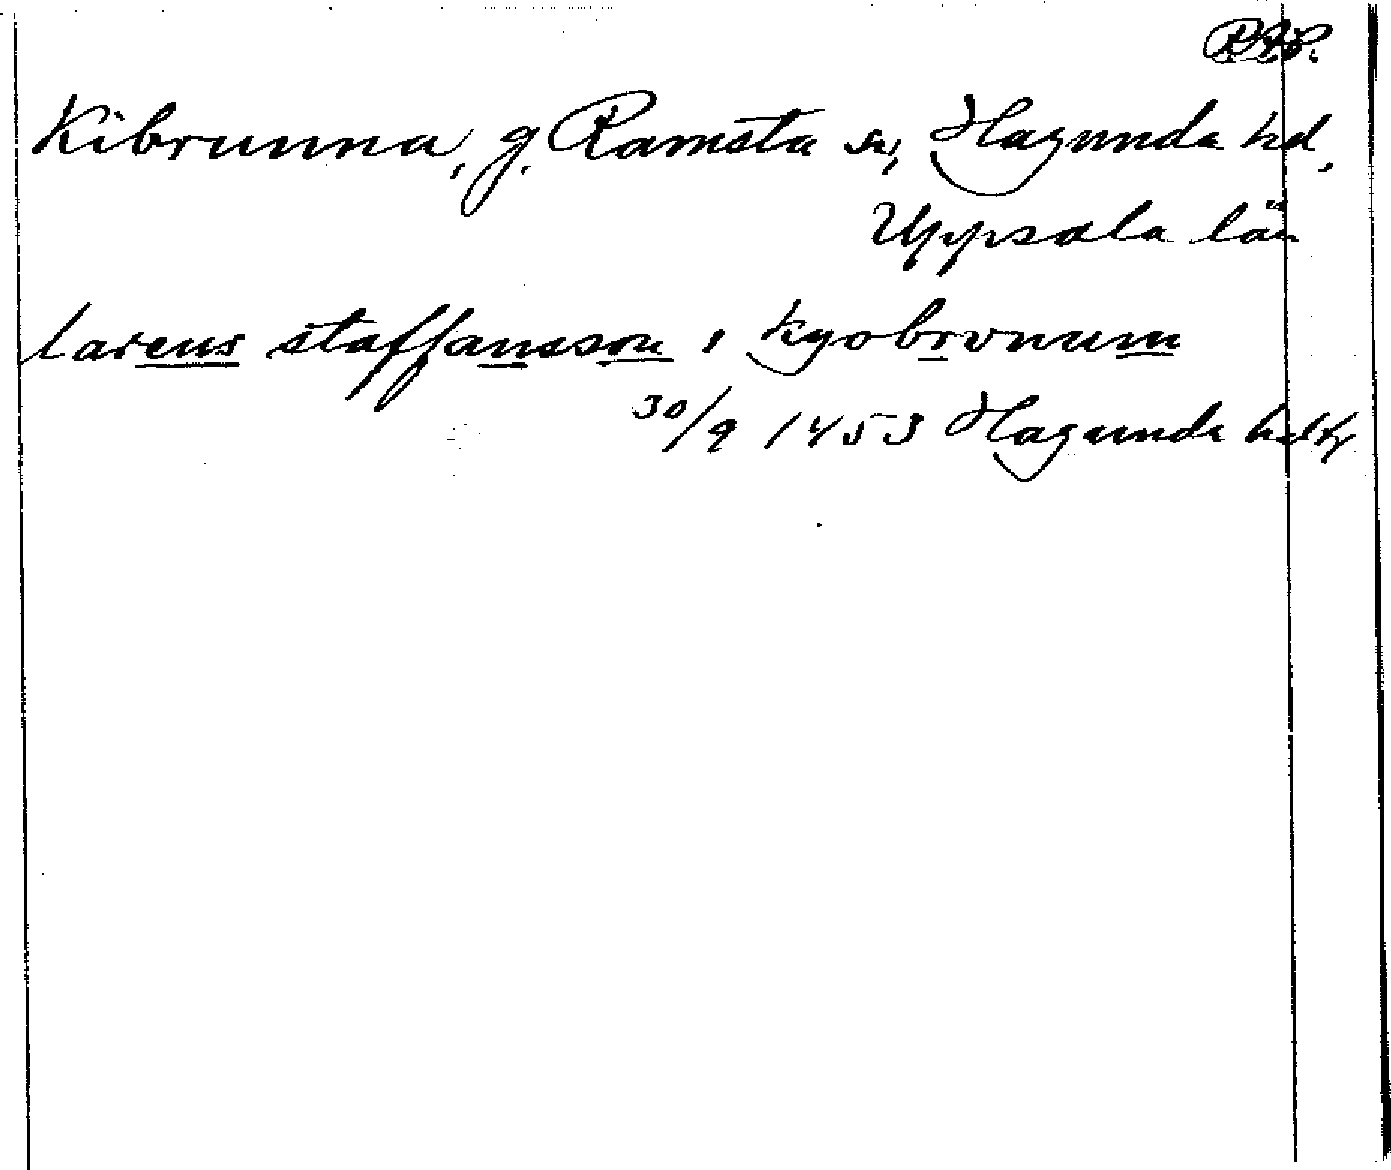 Kibrunna, g. Ramsta sn, Hagunda hd,
Uppsala län
lareus staffansson i kyobrvnum
30/9 1453 Hagunda hd